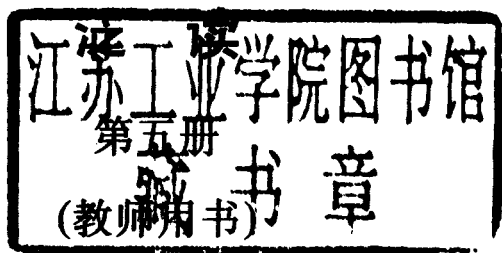 江苏工业学院图书馆
第五册
藏书章
(教师用书)